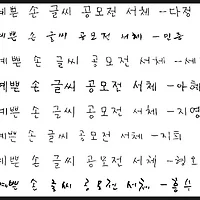 예쁜 손 글씨 공모전 서체 --다정
예쁜 손 글씨 공모전 서체 --민준
예쁜 손 글씨 공모전 서체 --세
예쁜 손 글씨 공모전 서체 --아혜
예쁜 손 글씨 공모전 서체 --지영
예쁜 손 글씨 공모전 서체 --지희
예쁜 손 글씨 공모전 서체 --형호
예쁜 손 글씨 공모전 서체 --홍식